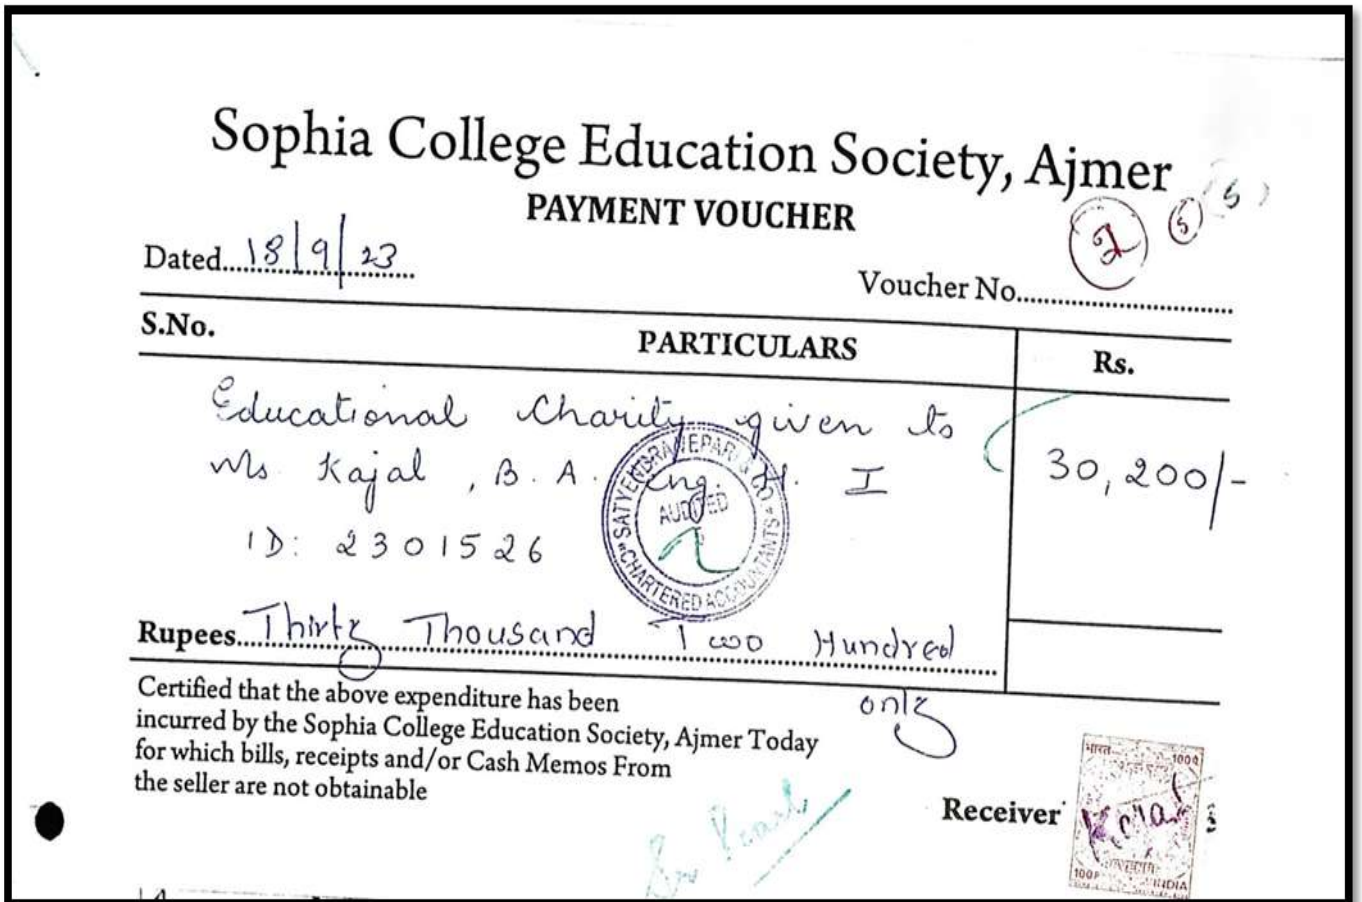 Sophia College Education Society, Ajmer
PAYMENT VOUCHER
2 5 5
Dated....18/9/23
Voucher No.
S.No. PARTICULARS Rs.
Educational Charity given to
Ms Kajal, B.A. Eng. H. I 30,200/-
ID: 2301526
SATYENDRA & CO
AUDITED
CHARTERED ACCOUNTANTS
Rupees....Thirty Thousand Two Hundred
only
Certified that the above expenditure has been
incurred by the Sophia College Education Society, Ajmer Today
for which bills, receipts and/or Cash Memos From
the seller are not obtainable
Receiver
भारत 100P
Kajal
100P INDIA